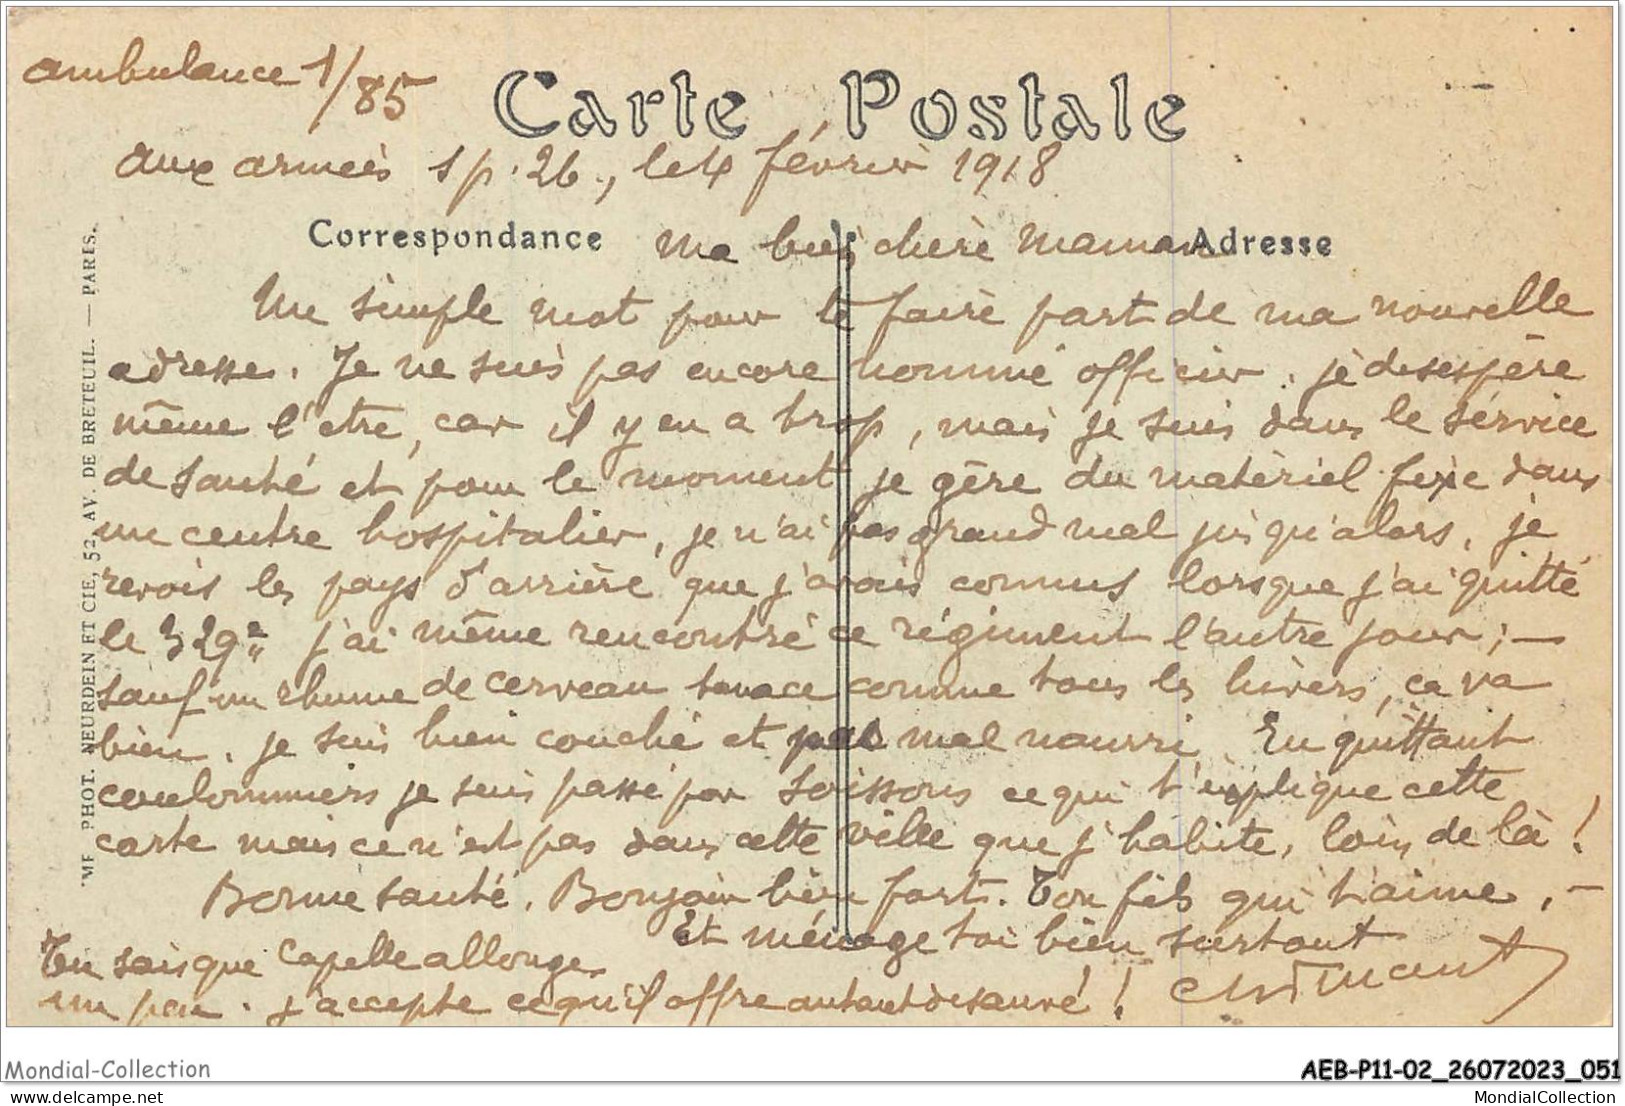 ambulance 1/85
Carte Postale
aux armées s p. 26., le 4 février 1918
Correspondance
Adresse
Ma bien chère Maman
Un simple mot pour te faire part de ma nouvelle
adresse. Je ne suis pas encore nommé officier. je désespère
même l'être, car il y en a trop, mais je suis dans le service
de santé et pour le moment je gère du matériel fixe dans
un centre hospitalier, je n'ai pas grand mal jusqu'alors, je
revois les pays d'arrière que j'avais connus lorsque j'ai quitté
le 329e j'ai même rencontré ce régiment l'autre jour ; —
sauf un rhume de cerveau tenace comme tous les hivers, ça va
bien. je suis bien couché et pas mal nourri. En quittant
coulommiers je suis passé par Soissons ce qui t'explique cette
carte mais ce n'est pas dans cette ville que j'habite, loin de là !
Bonne santé. Bonjour bien fort. Ton fils qui t'aime. —
Et ménage toi bien surtout
Tu sais que Capelle allonge
un peu. j'accepte ce qu'il offre autant de sauvé !
ME PHOT. NEURDEIN ET CIE, 52, AV. DE BRETEUIL. — PARIS.
Mondial-Collection
AEB-P11-02_26072023_051
MondialCollection